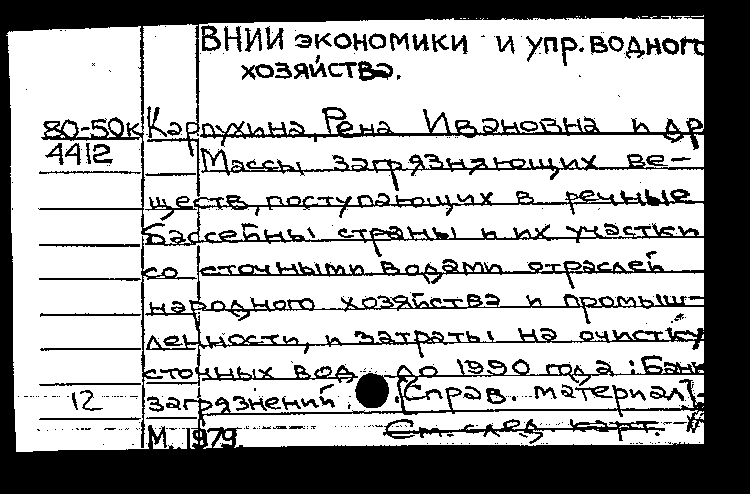 ВНИИ экономики и упр. водног
хозяйства.
80-50к Карпухина, Рена Ивановна и др
4412 Массы загрязняющих ве-
ществ, поступающих в речные
бассейны страны и их участки
со сточными водами отраслей
народного хозяйства и промыш-
ленности, и затраты на очистку
сточных вод до 1990 года: Банк
12 загрязнений. [Справ. материал].-
М. 1979. См. след. карт. #